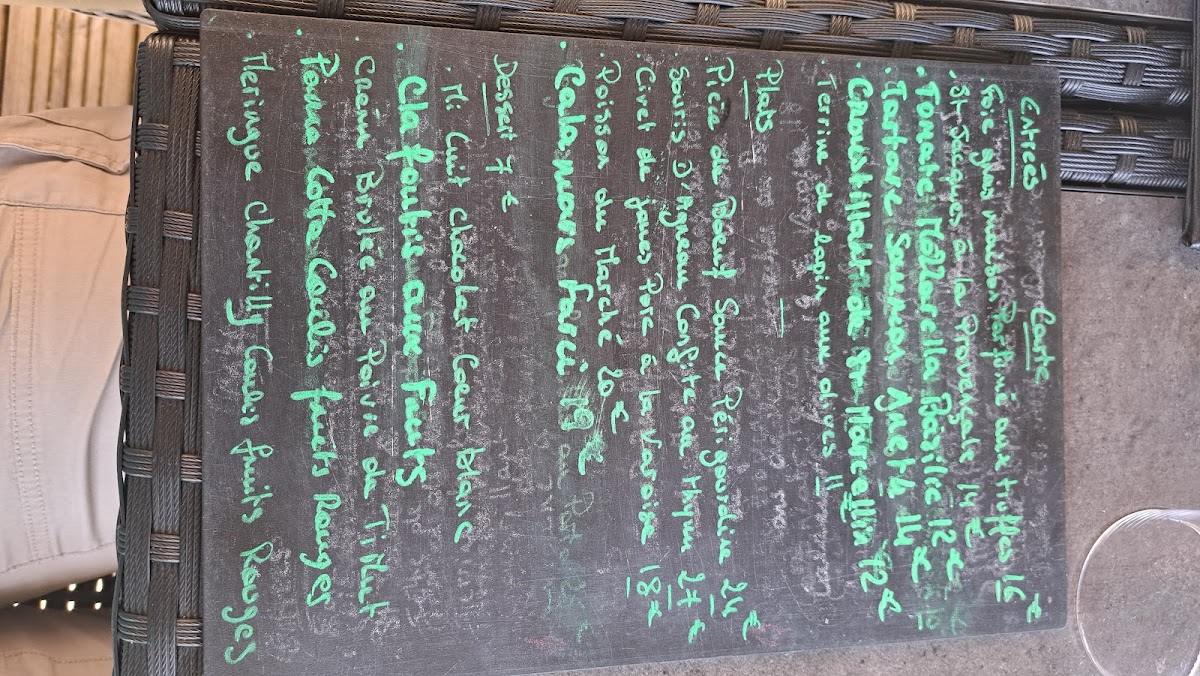 Carte
Entrées
. Foie gras maison Parfumé aux truffes 16 €
. St Jacques à la Provençale 14 €
. Tomate Mozzarella Basilic 12 €
. Tartare Saumon Aneth 14 €
. Croustillant de St Marcellin 12 €
. Terrine de lapin aux olives 11
Plats
. Pièce de Boeuf Sauce Périgourdine 24 €
. Souris D'Agneau Confite au thym 27 €
. Civet de joues Porc à la Varoise 18 €
. Poisson du Marché 20 €
. Calamars Farci 19 €
Dessert 7 €
. Mi Cuit chocolat Coeur blanc
. Clafoutis aux Fruits
. Crème Brulée au Poivre de Timut
. Panna Cotta Coulis fruits Rouges
. Meringue Chantilly Coulis fruits Rouges